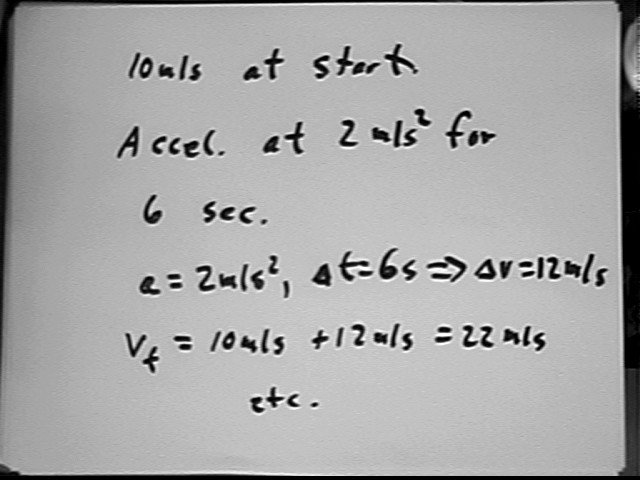 10m/s at start
Accel. at 2 m/s² for
6 sec.
a = 2m/s², Δt=6s ⇒ Δv=12m/s
Vf = 10m/s +12m/s = 22m/s
etc.